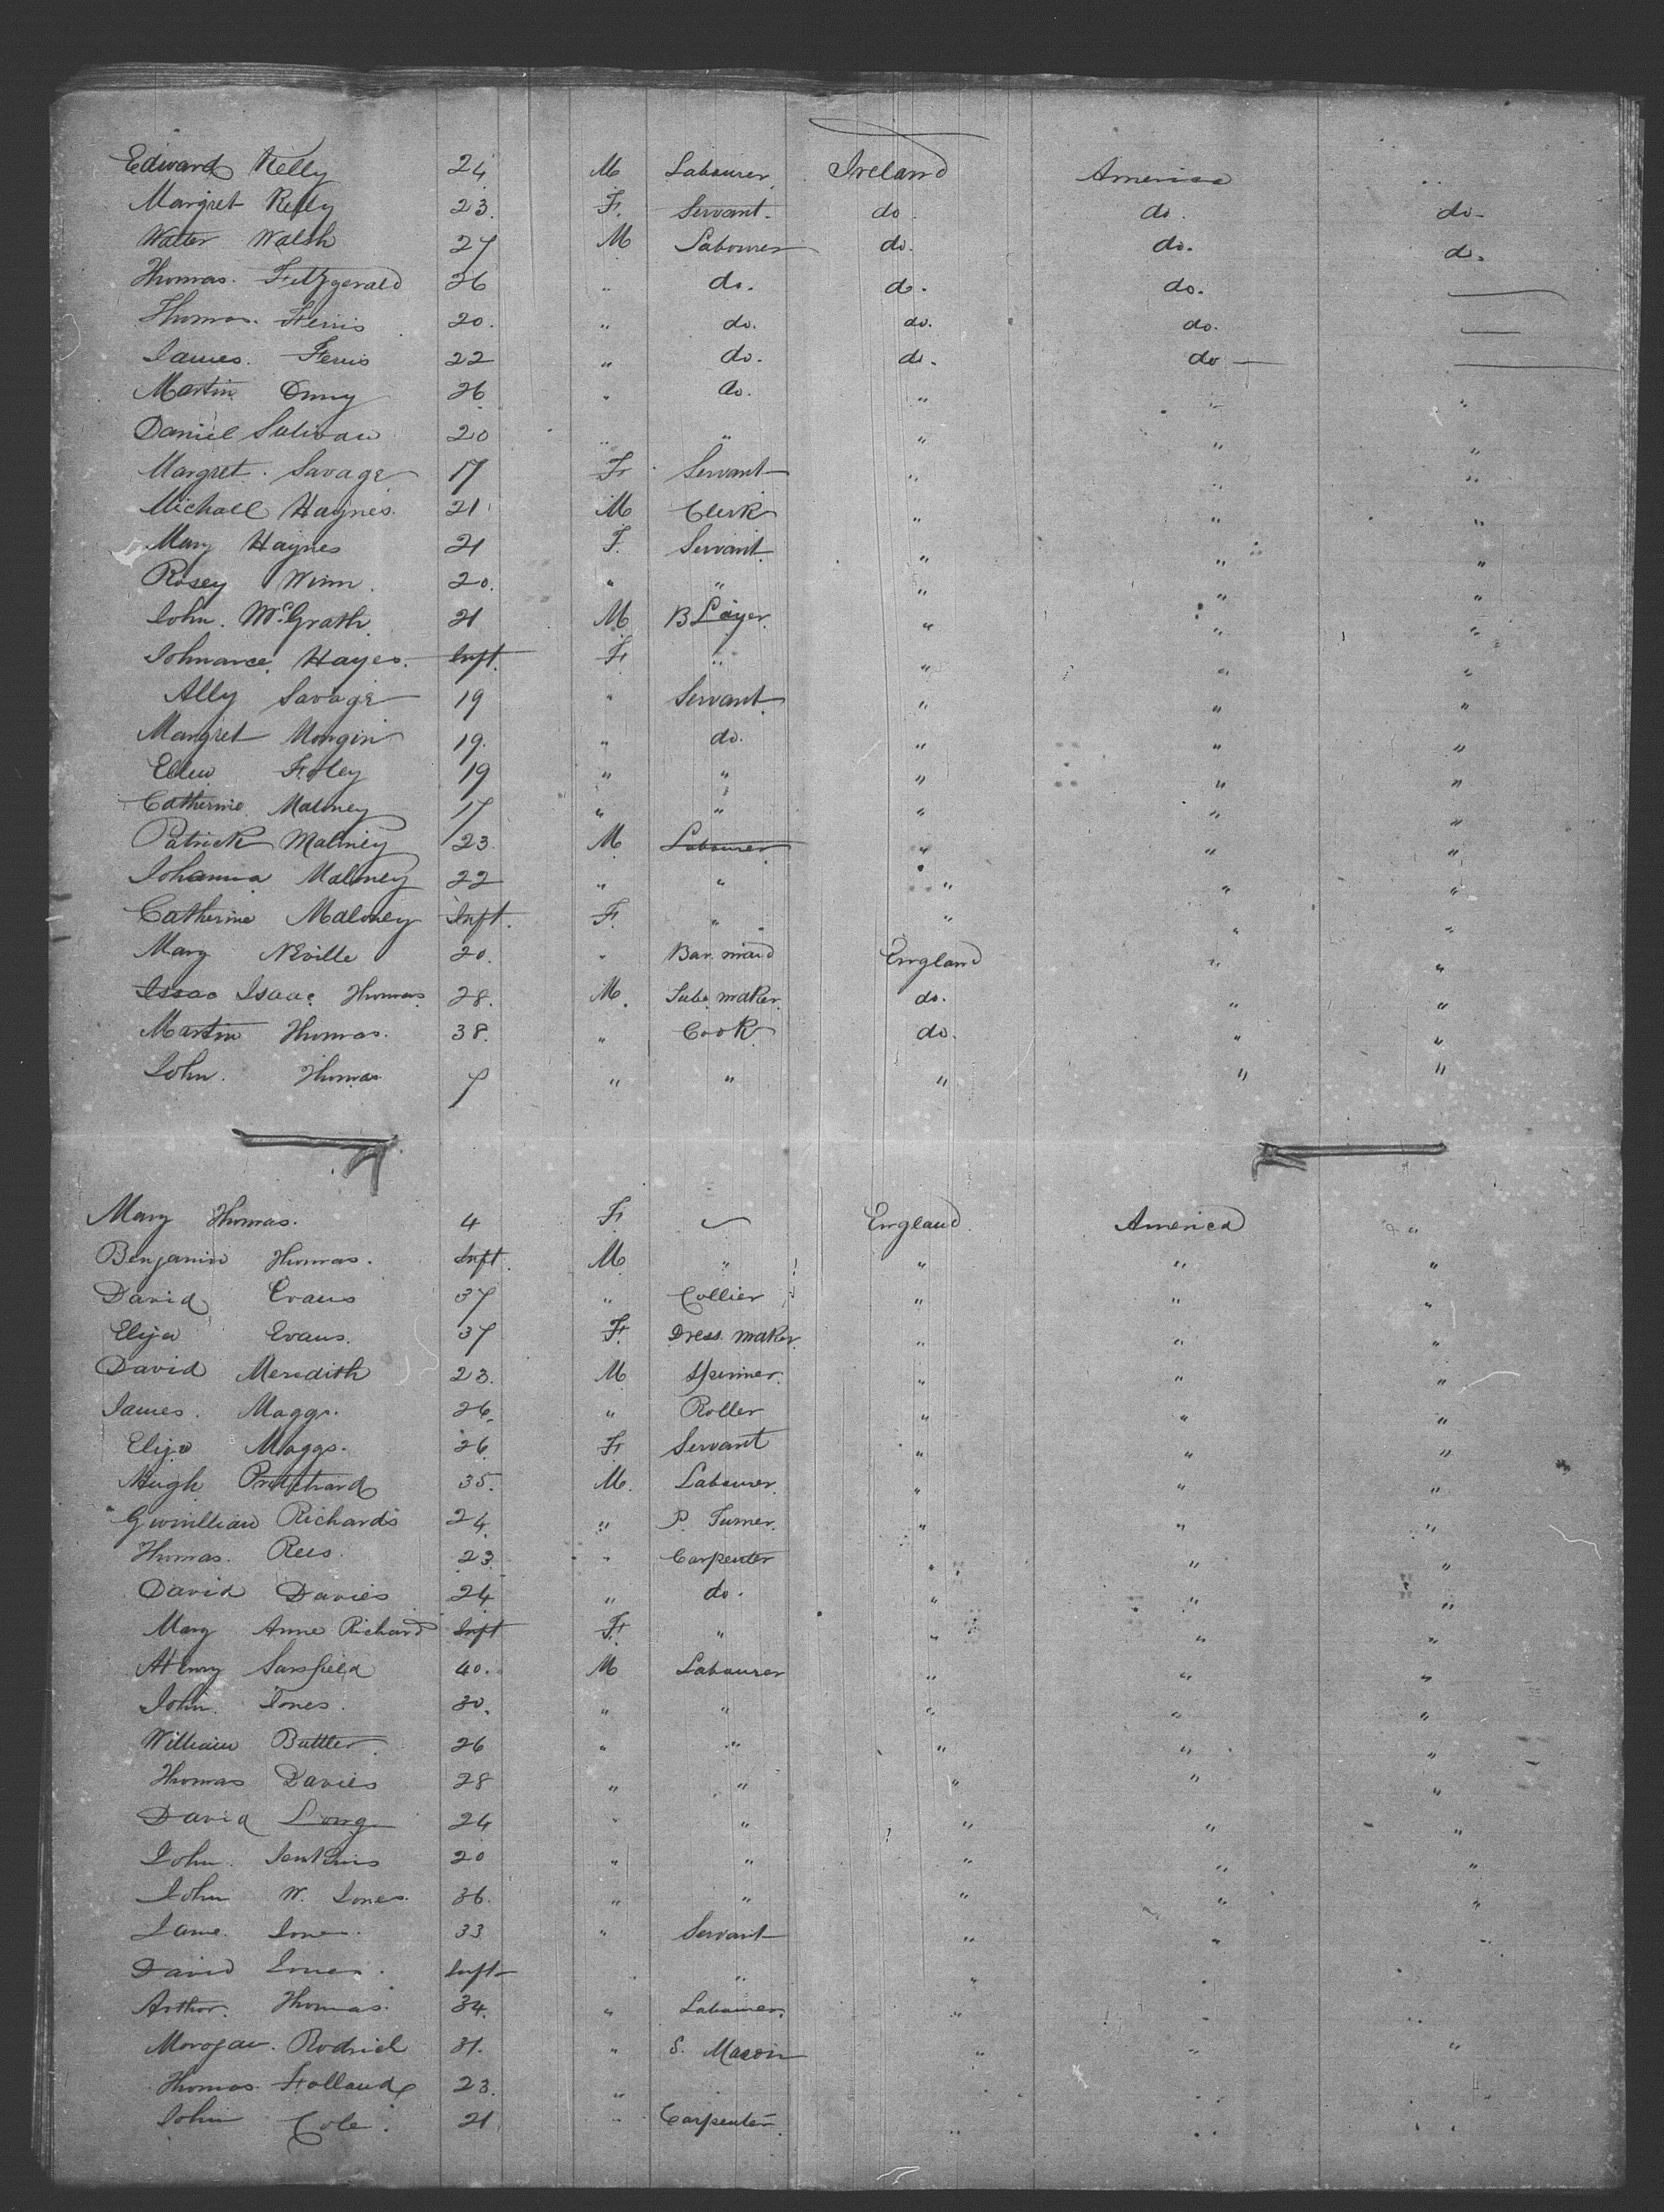 Edward Kelly 24 M Labourer Ireland America "
Margret Kelly 23. F. Servant. do. do. do-
Walter Walsh 27 M Labourer do. do. do.
Thomas. Fitzgerald 26 " do. do. do. —
Thomas. Ferris 20. " do. do. do. —
James. Ferris 22 " do. do. do — —
Martin 26 " do. " " "
Daniel Sulivan 20 " " " " "
Margret. Savage 17 F. Servant " " "
Michael Haynes. 21 M Clerk " " "
Mary Haynes 21 F. Servant " " "
Rosey Winn. 20. " " " " "
John. McGrath. 21 M B Layer. " " "
Hayes. Inft. F. " " " "
Ally Savage 19 " Servant " " "
Margret Mongin 19. " do. " " "
Ellen Foley 19 " " " " "
Catherine Maloney 17 " " " " "
Patrick Maloney 23. M. Labourer " " "
Johanna Maloney 22 " " " " "
Catherine Maloney Inft. F. " " " "
Mary Neville 20. " Bar. maid England " "
Isaac Isaac Thomas. 28. M. Tube maker. do. " "
Martin Thomas. 38. " Cook do. " "
John. Thomas 7 " " " " "
Mary Thomas. 4 F. — England. America "
Benjamin Thomas. Inft. M. " " " "
David Evans 37 " Collier " " "
Eliza Evans. 37 F. Dress. maker. " " "
David Meredith 23. M. Spinner. " " "
James. Maggs. 26. " Roller " " "
Eliza Maggs. 26. F. Servant " " "
Hugh Pritchard 35. M. Labourer. " " "
Gwinlliam Richards 24. " P. Turner. " " "
Thomas. Rees. 23 " Carpenter " " "
David Davies 24 " do. " " "
Mary Anne Richard Inft F. " " " "
Henry Sarsfield 40. M Labourer " " "
John. Jones. 30. " " " " "
William Buttler. 26 " " " " "
Thomas Davies 28 " " " " "
David Long 24 " " " " "
John. Jenkins 20 " " " " "
John W. Jones. 36. " " " " "
Jane. Jones. 33 " Servant " " "
David Jones. Inft " " " "
Arthor. Thomas. 34. " Labourer. " " "
31. " S. Mason " "
Thomas. Holland 23. " " " "
John Cole. 21 " Carpenter. " " "